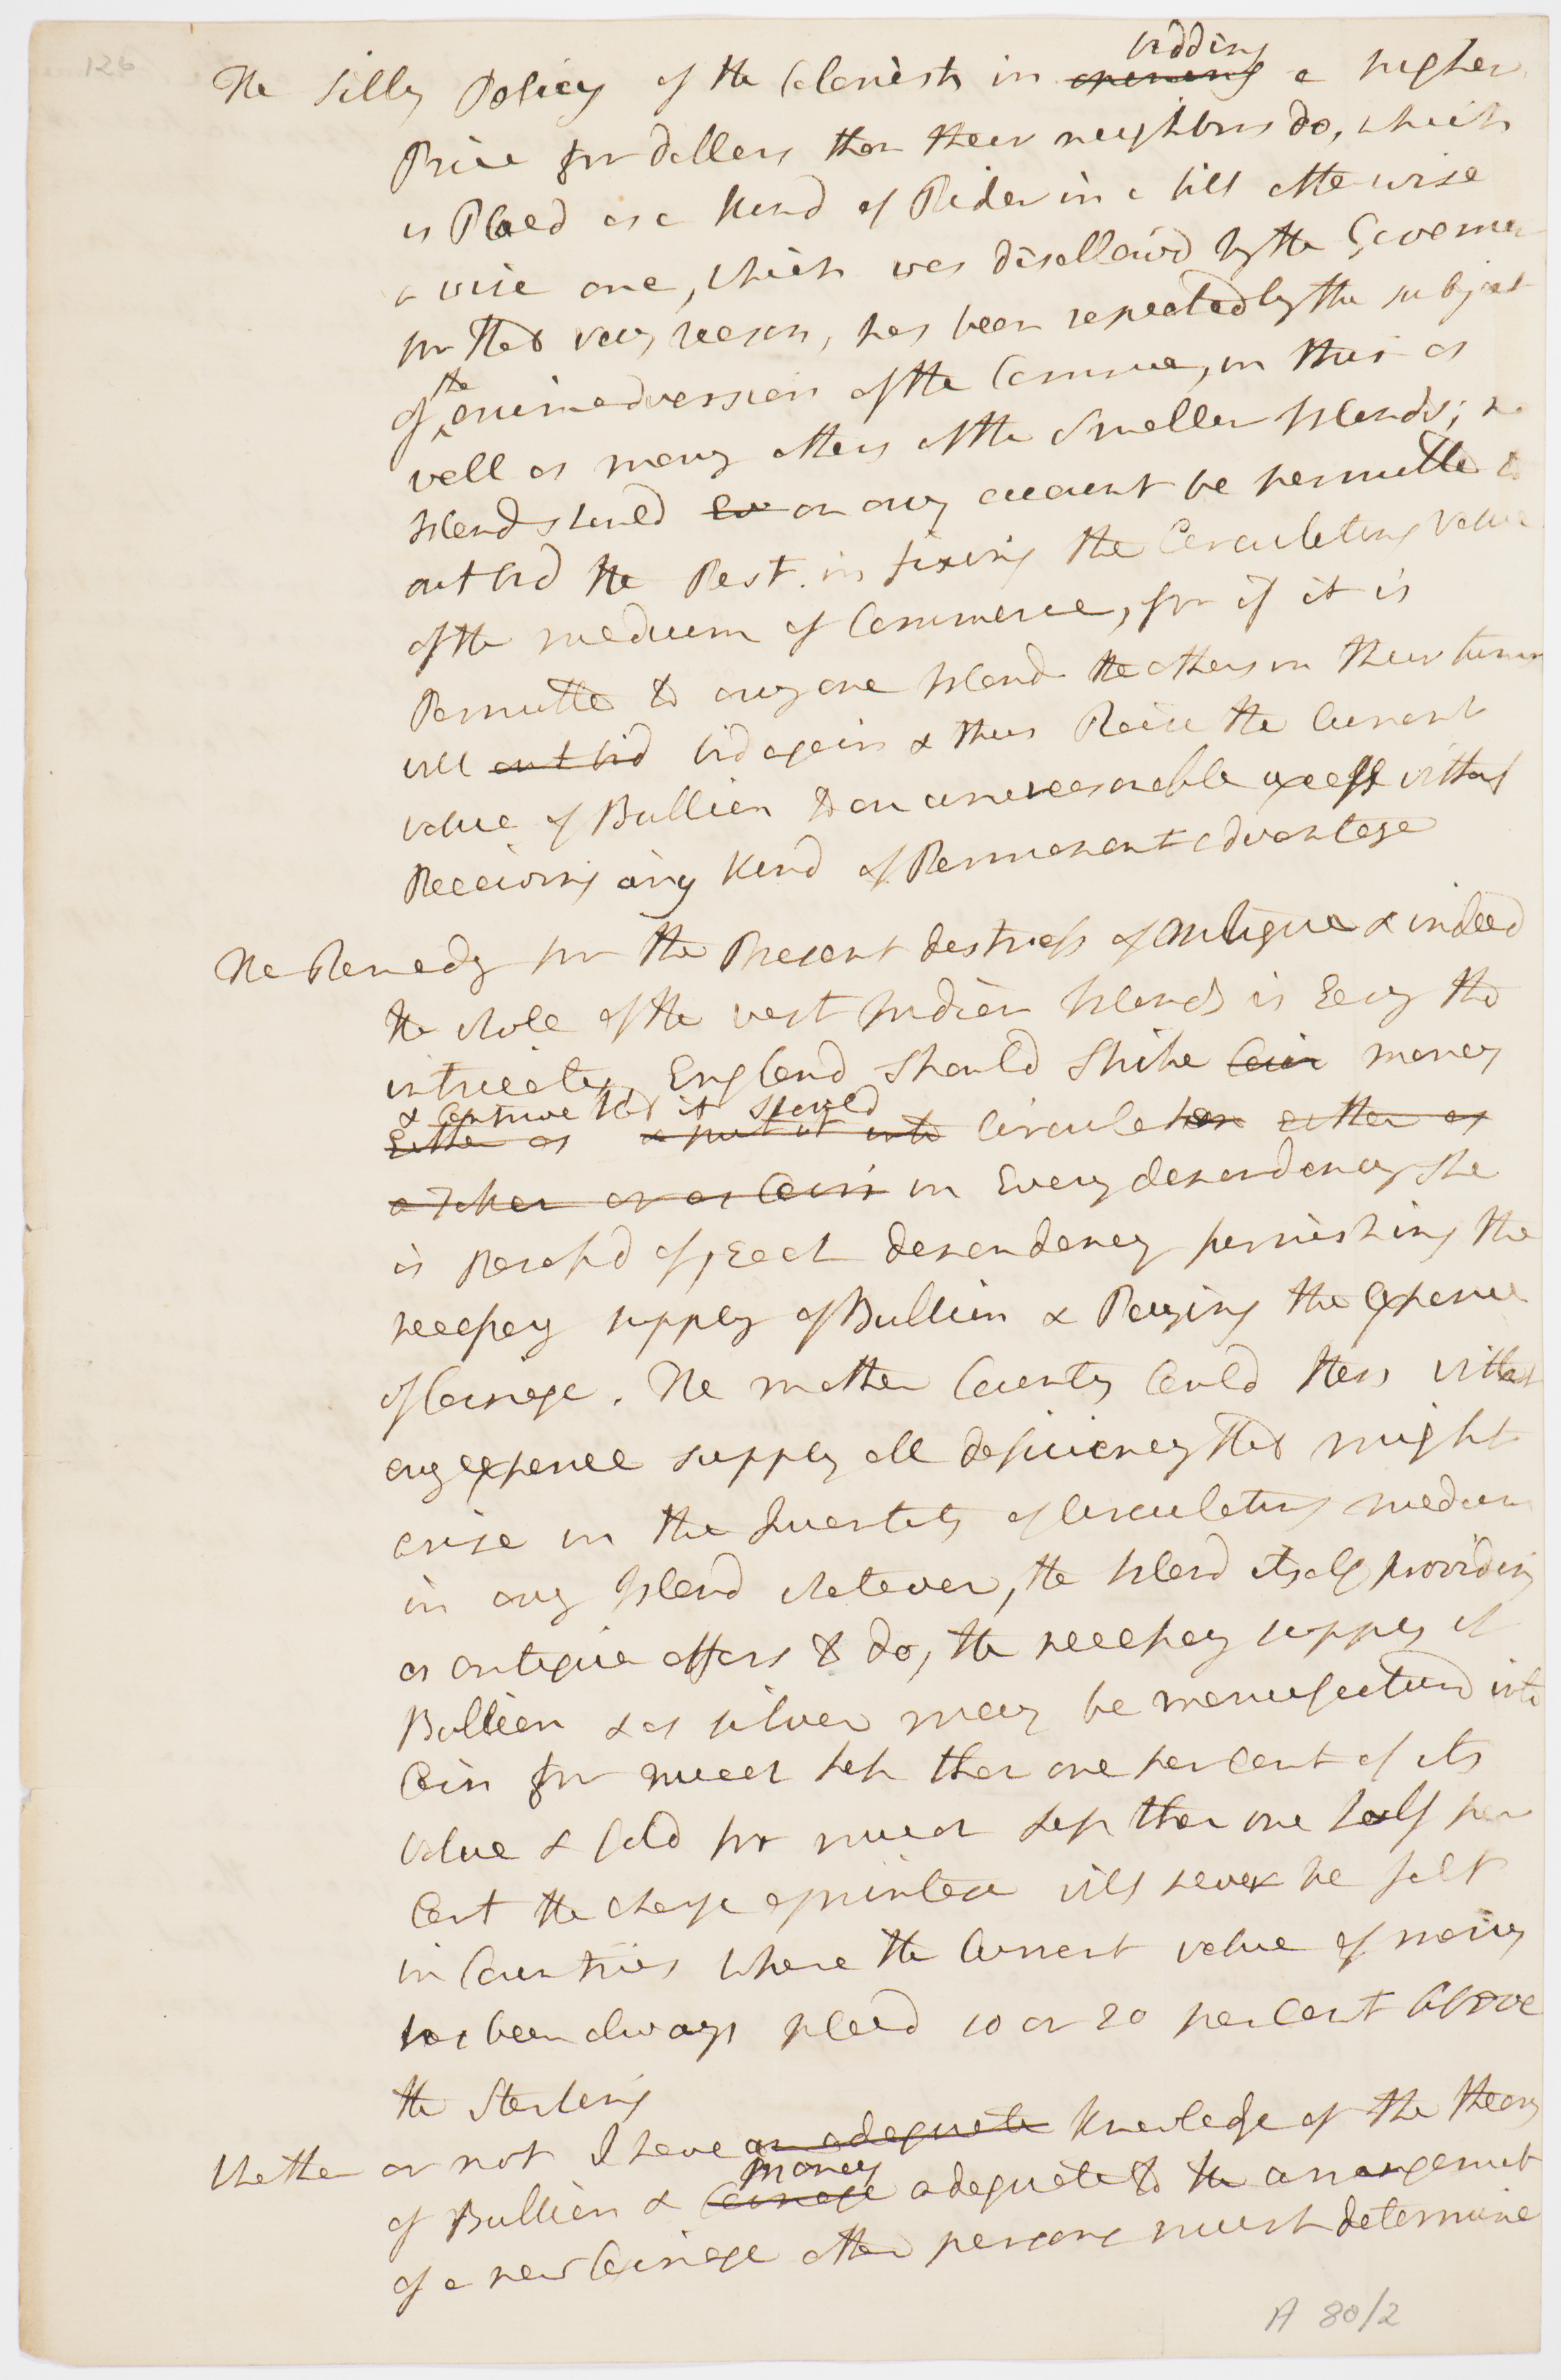 126
The Silly Policy of the Colonists in bidding opening a higher
Price for dollars than their neighbors do, which
is Placd as a kind of Rider in a bill otherwise
a wise one, which was disallowd by the Governor
for that very reason, has been repeatedly the subject
of the animadversion of the Commee, in this as
well as many others of the Smaller Islands; no
Island should Ev on any account be permitted to
out bid the Rest in fixing the Circulating Value
of the medium of Commerce, for if it is
Permitted to any one Island the others in their turns
will out bid bid again & thus Raise the Current
value of Bullion to an unreasonable excess without
Receiving any kind of Permanent advantage
The Remedy for the Present distress of Antigua & indeed
the whole of the west Indian Islands is Easy tho
intricate, England Should Strike Coin money
& Contrive that it should
Either as & put it into Circulation either as
a token or as Coin in Every dependency She
is Possessd of, Each dependency furnishing the
necessary supply of Bullion & Paying the Expence
of Coinage. The mother Country Could then without
any expence supply all deficiency that might
arise in the Quantity of Circulating medium
in any Island whatever, the Island itself providing
as antigua offers to do, the necessary supply of
Bullion & as silver may be manufactured into
Coin for much less than one per Cent of its
value & Gold for much less than one half per
Cent the charge of mintage will never be felt
in Countries where the Current value of money
has been always placd 10 or 20 per Cent above
the Sterling
Whether or not I have an adequate Knowledge of the theory
of Bullion & money Coinage adequate to the arrangement
of a new Coinage other persons must determine
A 80/2